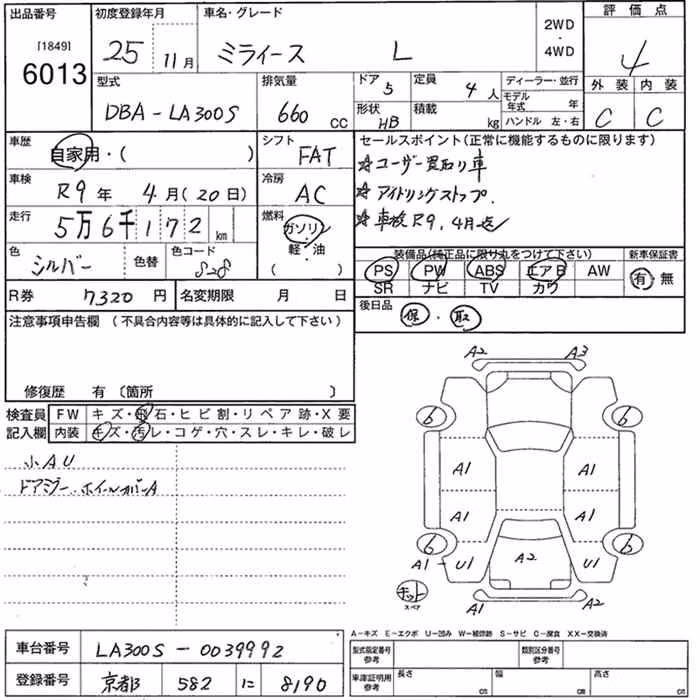 出品番号 初度登録年月 車名・グレード 評価点
[1849] 25 11月 ミライース L 2WD・4WD 4
6013
型式 排気量 ドア 5 定員 4人 ディーラー・並行 外装 内装
DBA-LA300S 660 CC 形状 HB 積載 kg モデル年式 年 C C
ハンドル 左・右
車歴 自家用・( ) シフト FAT セールスポイント(正常に機能するものに限ります)
☆ユーザー買取り車
車検 R9年 4月(20日) 冷房 AC ☆アイドリングストップ.
走行 5万6千172 km 燃料 ガソリン ☆車検R9.4月迄
軽・油
( )
色 シルバー 色替 色コード S28 装備品(純正品に限り丸をつけて下さい) 新車保証書
PS PW ABS エアB AW 有・無
R券 7320円 名変期限 月 日 SR ナビ TV カワ
後日品 保・取
注意事項申告欄(不具合内容等は具体的に記入して下さい)
修復歴 有(箇所 )
検査員 FW キズ・飛石・ヒビ割・リペア跡・X要
記入欄 内装 キズ・汚レ・コゲ・穴・スレ・キレ・破レ
小AU
ドアミラー.ホイールカバーA
A2 A3
6 6
A1 A1
A1 A1
6 6
A1 - U1 A2 U1
キット
スペア
A1 A2
A-キズ E-エクボ U-凹み W-補修跡 S-サビ C-腐食 XX-交換済
車台番号 LA300S-0039992 型式指定番号 参考 類別区分番号 参考
登録番号 京都 582 に 8190 車庫証明用 参考 長さ cm 幅 cm 高さ cm